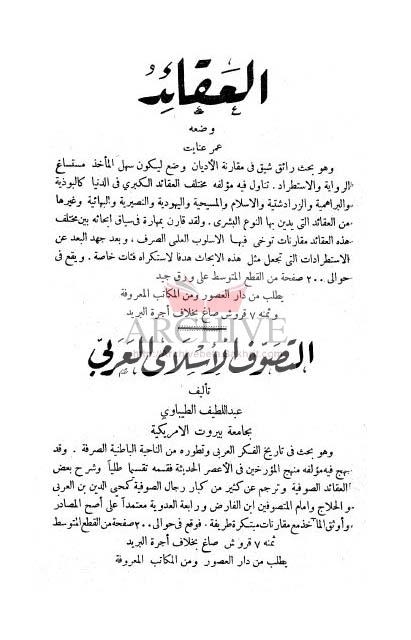 العقائد
وضعه
عمر عنايت
وهو بحث رائق شيق في مقارنة الأديان وضع ليكون سهل المأخذ مستساغ
الرواية والاستطراد . تناول فيه مؤلفه مختلف العقائد الكبرى في الدنيا كالبوذية
والبراهمية والزرادشتية والاسلام والمسيحية واليهودية والنصيرية والبهائية وغيرها
من العقائد التي يدين بها النوع البشرى . ولقد قارن بمهارة في سياق ابحاثه بين مختلف
هذه العقائد مقارنات توخى فيها الاسلوب العلمى الصرف ، وبعد جهد البعد عن
الاستطرادات التي تجعل مثل هذه الابحاث هدفا لاستكراه فئات خاصة . ويقع في
حوالى ٢٠٠ صفحة من القطع المتوسط على ورق جيد
يطلب من دار العصور ومن المكاتب المعروفة
وثمنه ٧ قروش صاغ بخلاف أجرة البريد
ARCHIVE
التصوف الأسلامى العربى
تأليف
عبد اللطيف الطيباوي
بجامعة بيروت الامريكية
وهو بحث في تاريخ الفكر العربى وتطوره من الناحية الباطنية الصرفة . وقد
نهج فيه مؤلفه منهج المؤرخين في الأعصر الحديثة فقسمه تقسيما طليا وشرح بعض
العقائد الصوفية وترجم عن كثير من كبار رجال الصوفية كمحيى الدين بن العربى
والحلاج وامام المتصوفين ابن الفارض ورابعة العدوية معتمداً على أصح المصادر
وأوثق المآخذ مع مقارنات مبتكرة طريفة . فوقع في حوالى ٢٠٠ صفحة من القطع المتوسط
ثمنه ٧ قروش صاغ بخلاف أجرة البريد
يطلب من دار العصور ومن المكاتب المعروفة